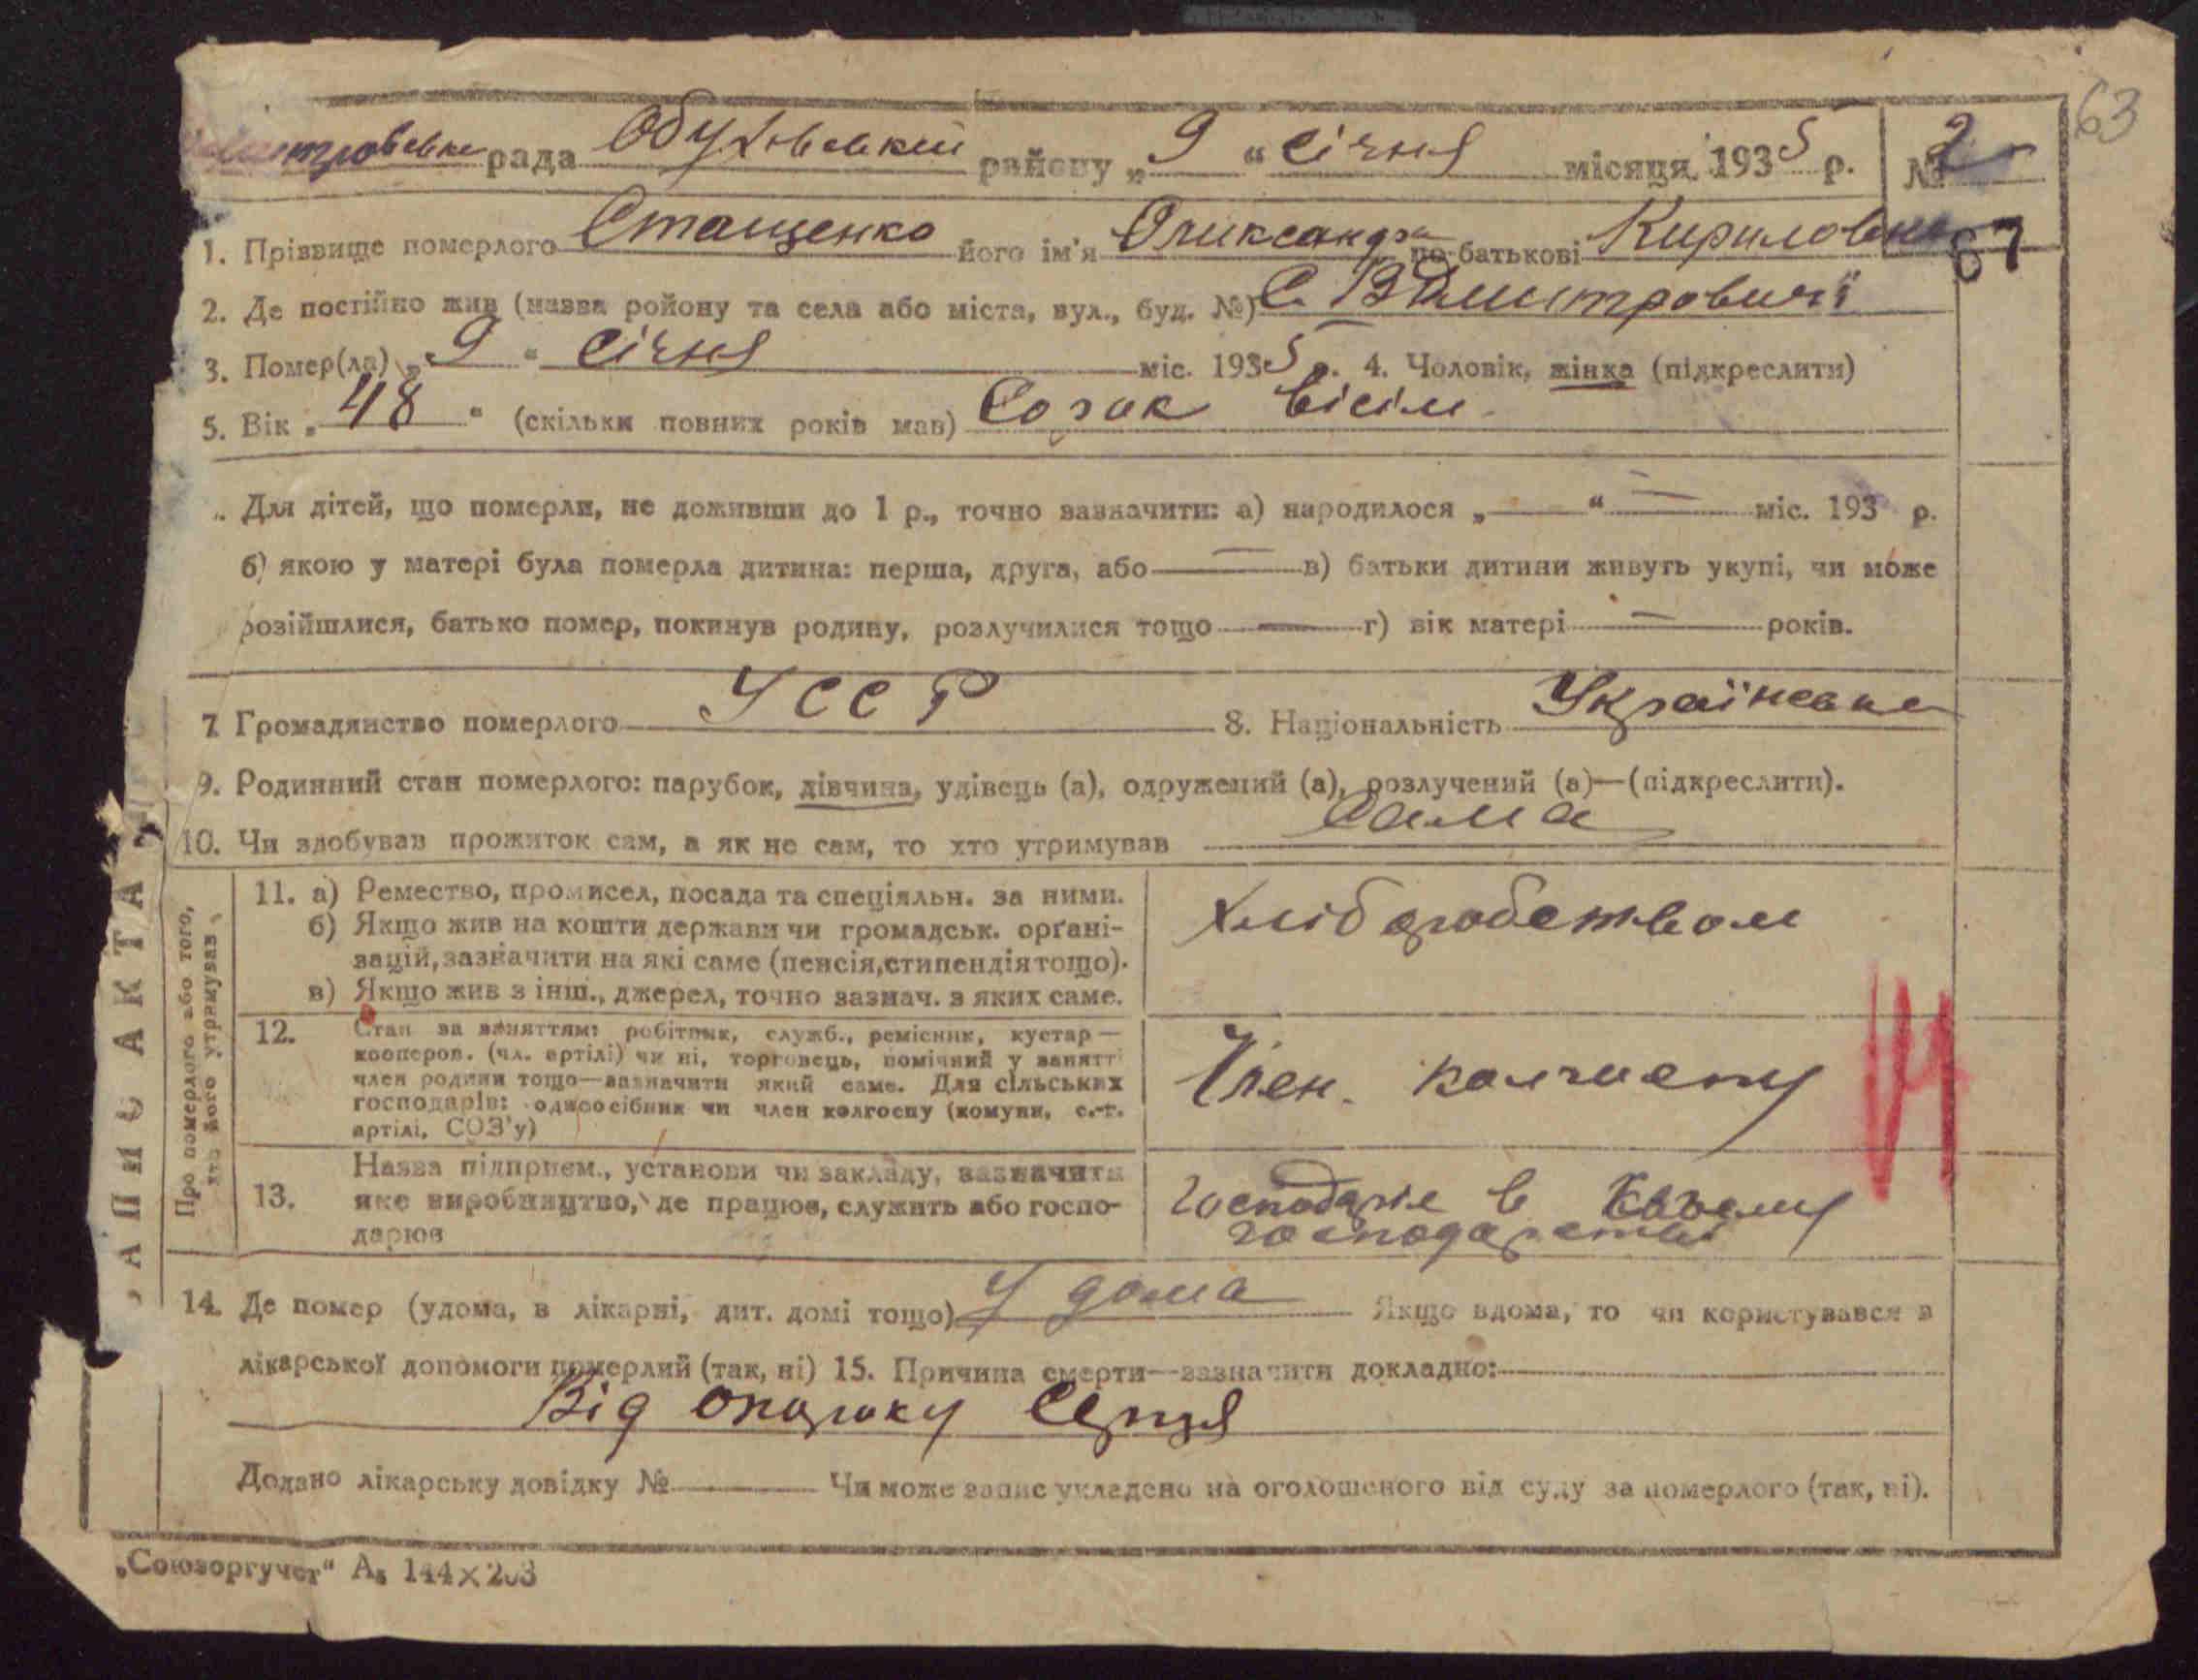 63
рада Обухівський району „9“ січня місяця 1935 р. № 2
67
1. Прізвище померлого Стащенко його ім'я Олександра по-батькові Кириловна
2. Де постійно жив (назва ройону та села або міста, вул., буд. №) С. В Дмитровичі
3. Помер(ла) „9“ січня міс. 1935 р. 4. Чоловік, жінка (підкреслити)
5. Вік „48“ (скільки повних років мав) Сорок вісім
Для дітей, що померли, не доживши до 1 р., точно зазначити: а) народилося „—“ — міс. 193 р.
б) якою у матері була померла дитина: перша, друга, або — в) батьки дитини живуть укупі, чи може
розійшлися, батько помер, покинув родину, розлучилися тощо — г) вік матері — років.
7 Громадянство померлого УССР 8. Національність Українська
9. Родинний стан померлого: парубок, дівчина, удівець (а), одружений (а), розлучений (а)—(підкреслити).
10. Чи здобував прожиток сам, а як не сам, то хто утримував Сама
ЗАПИС АКТА
Про померлого або того,
хто його утримував
11. а) Ремество, промисел, посада та спеціяльн. за ними.
б) Якщо жив на кошти держави чи громадськ. орґані-
зацій, зазначити на які саме (пенсія, стипендія тощо).
в) Якщо жив з інш., джерел, точно зазнач. з яких саме.
Хліборобством
12. Стан за заняттям: робітник, служб., ремісник, кустар—
кооперов. (чл. артілі) чи ні, торговець, помічний у занятті
член родини тощо—зазначити який саме. Для сільських
господарів: одноосібник чи член колгоспу (комуни, с.-г.
артілі, СОЗ'у)
Член
13. Назва підприєм., установи чи закладу, зазначити
яке виробництво, де працює, служить або госпо-
дарює
господарстві
14. Де помер (удома, в лікарні, дит. домі тощо) У дома Якщо вдома, то чи користувався з
лікарської допомоги померлий (так, ні) 15. Причина смерти—зазначити докладно:
Від серця
Додано лікарську довідку № — Чи може запис укладено на оголошеного від суду за померлого (так, ні).
„Союзоргучет“ А₅ 144×203